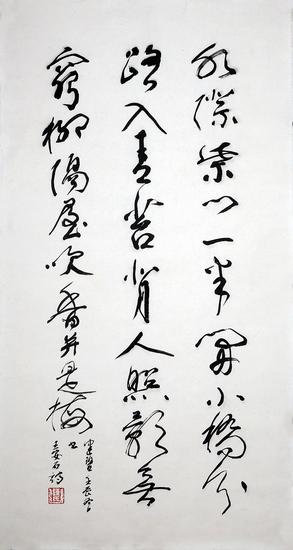 水際柴門一半開小橋分
路入青苔背人照影無
窮柳隔屋吹香并是梅
王安石詩